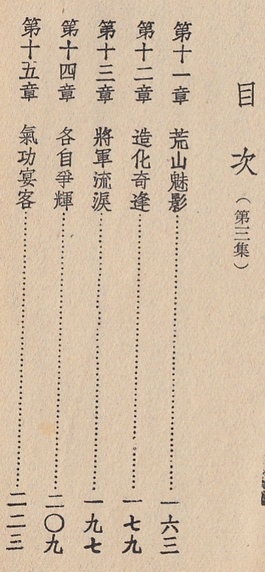 目次（第三集）
第十一章　荒山魅影…………一六三
第十二章　造化奇逢…………一七九
第十三章　將軍流淚…………一九七
第十四章　各自爭輝…………二〇九
第十五章　氣功宴客…………二二三